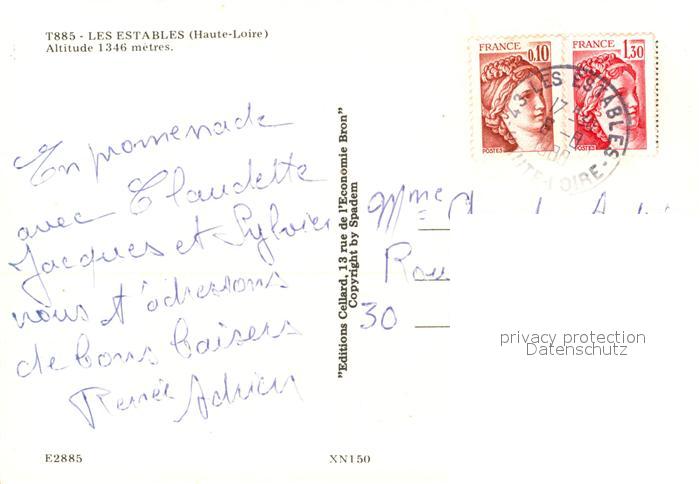 T885 - LES ESTABLES (Haute-Loire)
Altitude 1346 mètres.
FRANCE 0,10
POSTES
FRANCE 1,30
POSTES
43 - LES ESTABLES
HAUTE-LOIRE
En promenade
avec Claudette
Jacques et Sylvie
nous t'adressons
de bons baisers
Renée Adrien
"Editions Cellard, 13 rue de l'Economie Bron"
Copyright by Spadem
Mme
30
privacy protection
Datenschutz
E2885
XN150